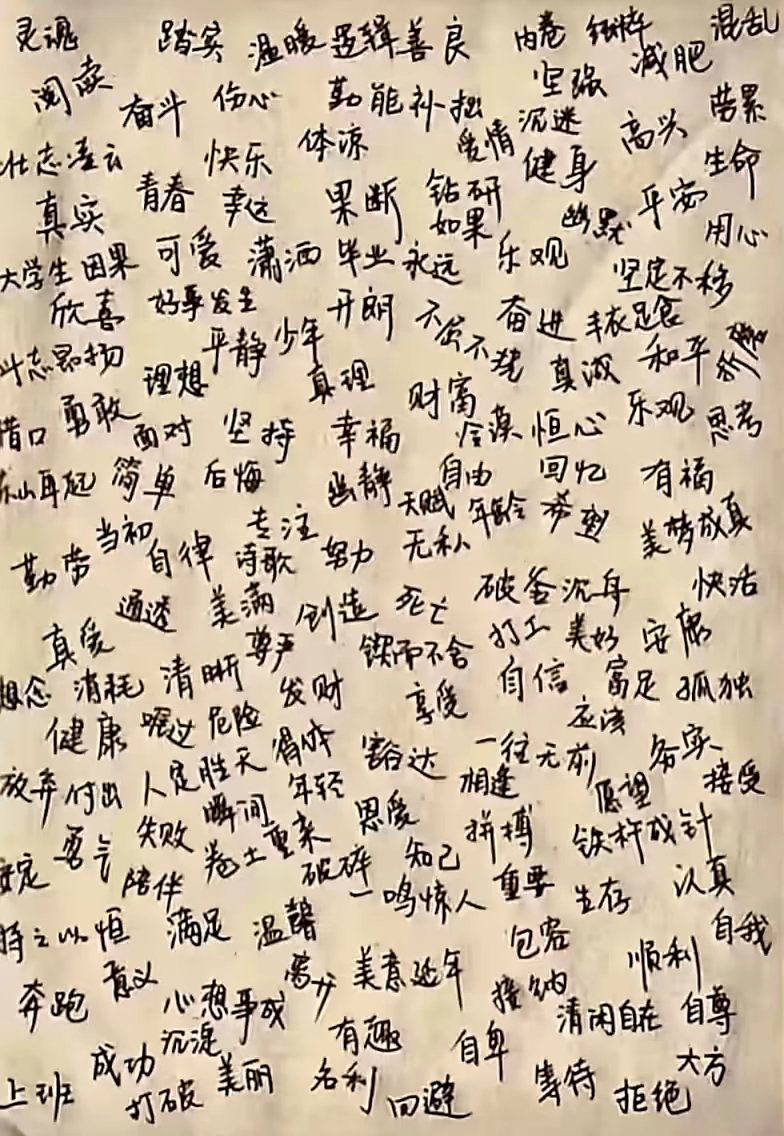 灵魂 踏实 温暖 逻辑 善良 内卷 纯粹 混乱
阅读 奋斗 伤心 勤能补拙 坚强 减肥
壮志凌云 快乐 体凉 爱情 沉迷 健身 高兴 劳累
真实 青春 幸运 果断 钻研 如果 幽默 平安 生命
大学生 因果 可爱 潇洒 毕业 永远 乐观 用心
欣喜 好事发生 开朗 不屈不挠 奋进 丰衣足食 坚定不移
斗志昂扬 平静 少年 理想 真理 真诚 和平
借口 勇敢 面对 坚持 幸福 财富 冷漠 恒心 乐观 思考
东山再起 简单 后悔 幽静 自由 回忆 有福
勤劳 当初 自律 专注 诗歌 努力 天赋 无私 年龄 美梦成真
真爱 通透 美满 创造 死亡 破釜沉舟 快活
想念 消耗 清晰 尊严 锲而不舍 打工 美好 安康
健康 危险 发财 享受 自信 富足 孤独
放弃 付出 人定胜天 豁达 一往无前 应该 务实
失败 瞬间 年轻 恩爱 相逢 愿望 接受
安定 勇气 陪伴 卷土重来 破碎 知己 拼搏 铁杵成针
持之以恒 满足 温馨 一鸣惊人 重要 生存 认真
奔跑 意义 心想事成 离别 美意延年 包容 接纳 顺利 自我
沉淀 有趣 自卑 清闲自在 自尊
上班 成功 打破 美丽 名利 回避 等待 拒绝 大方